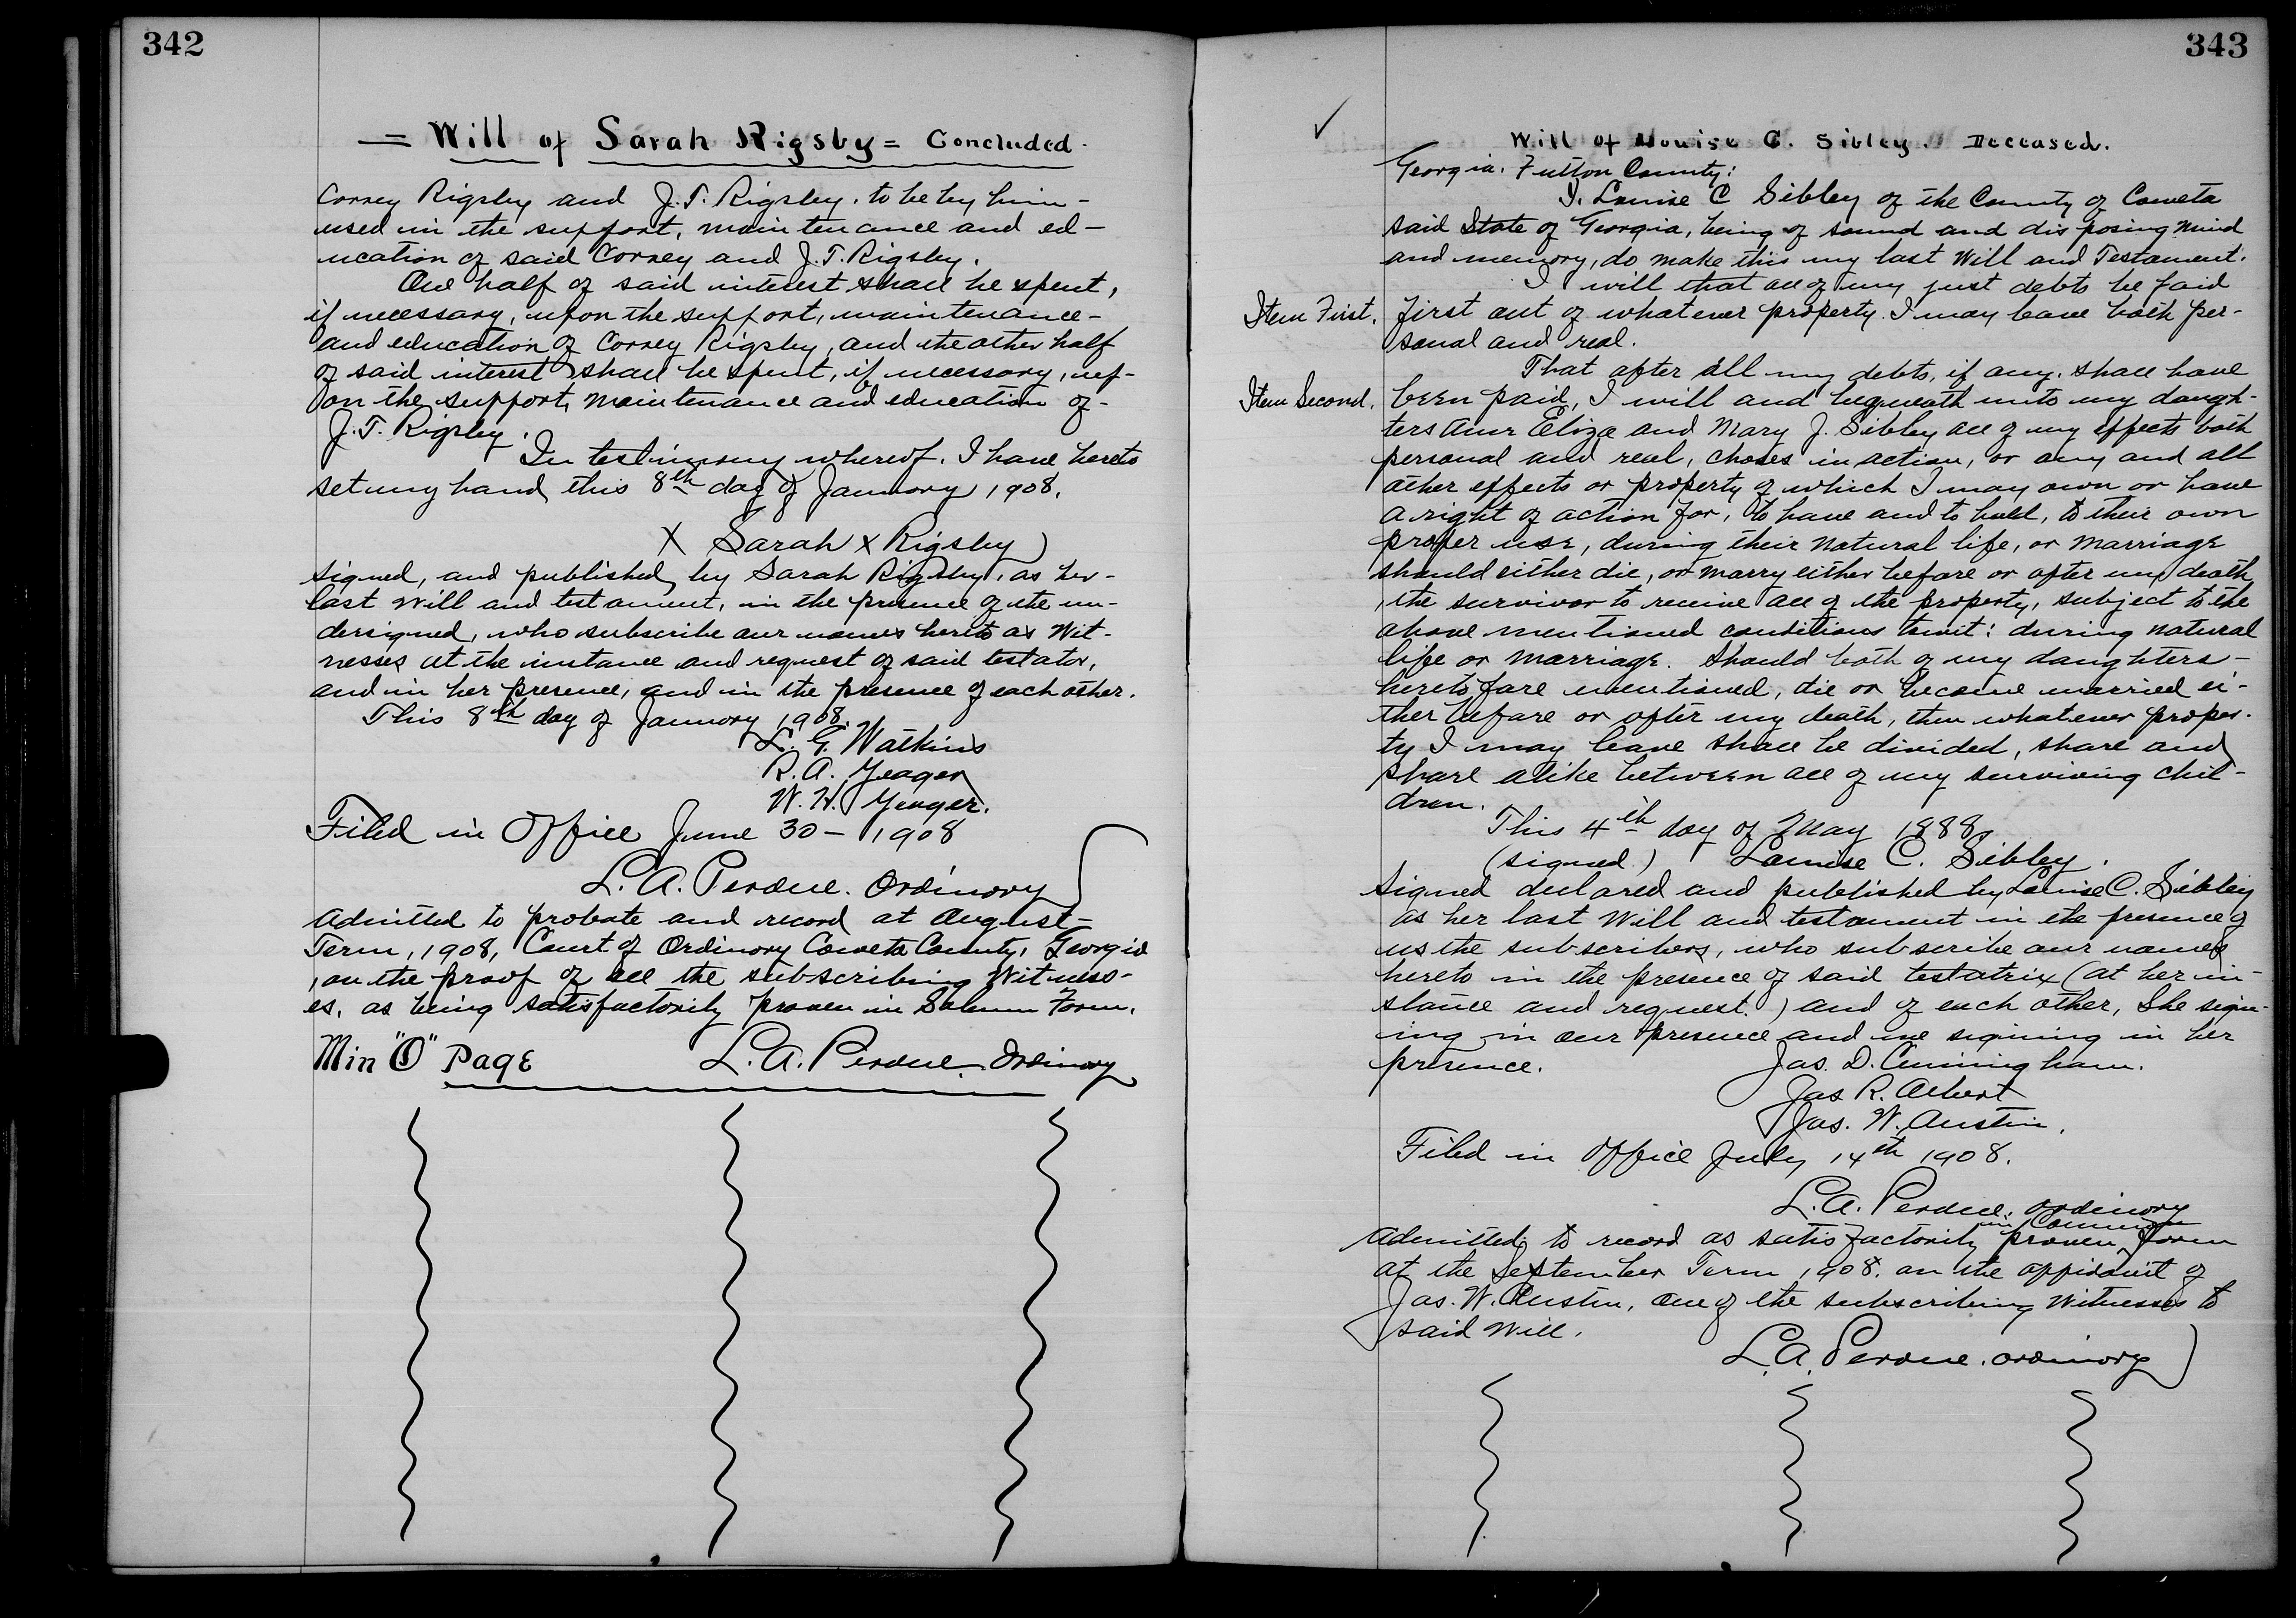 342
= Will of Sarah Rigsby = Concluded.
Corney Rigsby and J.T. Rigsby, to be by him-
used in the support, maintenance and ed-
ucation of said Corney and J.T. Rigsby.
One half of said interest shall be spent,
if necessary, upon the support, maintenance-
and education of Corney Rigsby, and the other half
of said interest shall be spent, if necessary, up-
on the support, maintenance and education of-
J.T. Rigsby.
In testimony whereof, I have hereto
set my hand, this 8th day of January, 1908.
X Sarah x Rigsby
Signed, and published by Sarah Rigsby, as her-
last will and testament, in the presence of the un-
dersigned, who subscribe our names hereto as Wit-
nesses at the instance and request of said testator,
and in her presence, and in the presence of each other.
This 8th day of January 1908.
L. G. Watkins
R. A. Yeager
W. H. Yeager.
Filed in Office June 30- 1908
L. A. Perdue. Ordinary
Admitted to probate and record at August-
Term, 1908, Court of Ordinary Coweta County, Georgia
, on the proof of all the subscribing Witness-
es, as being satisfactorily proven in Solemn Form.
Min "O" Page L. A. Perdue. Ordinary
343
✓
Will of Louise C. Sibley. Deceased.
Georgia. Fulton County:
I, Louise C Sibley of the County of Coweta
said State of Georgia, being of sound and disposing mind
and memory, do make this my last Will and Testament.
I will that all of my just debts be paid
Item First. first out of whatever property I may leave both per-
sonal and real.
That after all my debts, if any, shall have
Item Second. been paid, I will and bequeath unto my daugh-
ters Ann Eliza and Mary J. Sibley all of my effects both
personal and real, choses in action, or any and all
other effects or property of which I may own or have
a right of action for, to have and to hold, to their own
proper use, during their natural life, or marriage
should either die, or marry either before or after my death
, the survivor to receive all of the property, subject to the
above mentioned conditions towit: during natural
life or marriage. Should both of my daughters-
heretofore mentioned, die or become married ei-
ther before or after my death, then whatever proper-
ty I may leave shall be divided, share and
share alike between all of my surviving chil-
dren.
This 4th day of May 1888
(signed.) Louise C. Sibley.
Signed declared and published by Louise C. Sibley
as her last Will and testament in the presence of
us the subscribers, who subscribe our names
hereto in the presence of said testatrix (at her in-
stance and request.) and of each other, She sign-
ing in our presence and we signing in her
presence. Jas. D. Cunningham.
Jas R. Albert
Jas. W. Austin.
Filed in Office July 14th 1908.
L. A. Perdue. ordinary
in Common
Admitted to record as satisfactorily proven ^ form
at the September Term 1908. on the affidavit of
Jas. W. Austin, one of the subscribing Witnesses to
said Will.
L. A. Perdue. ordinary